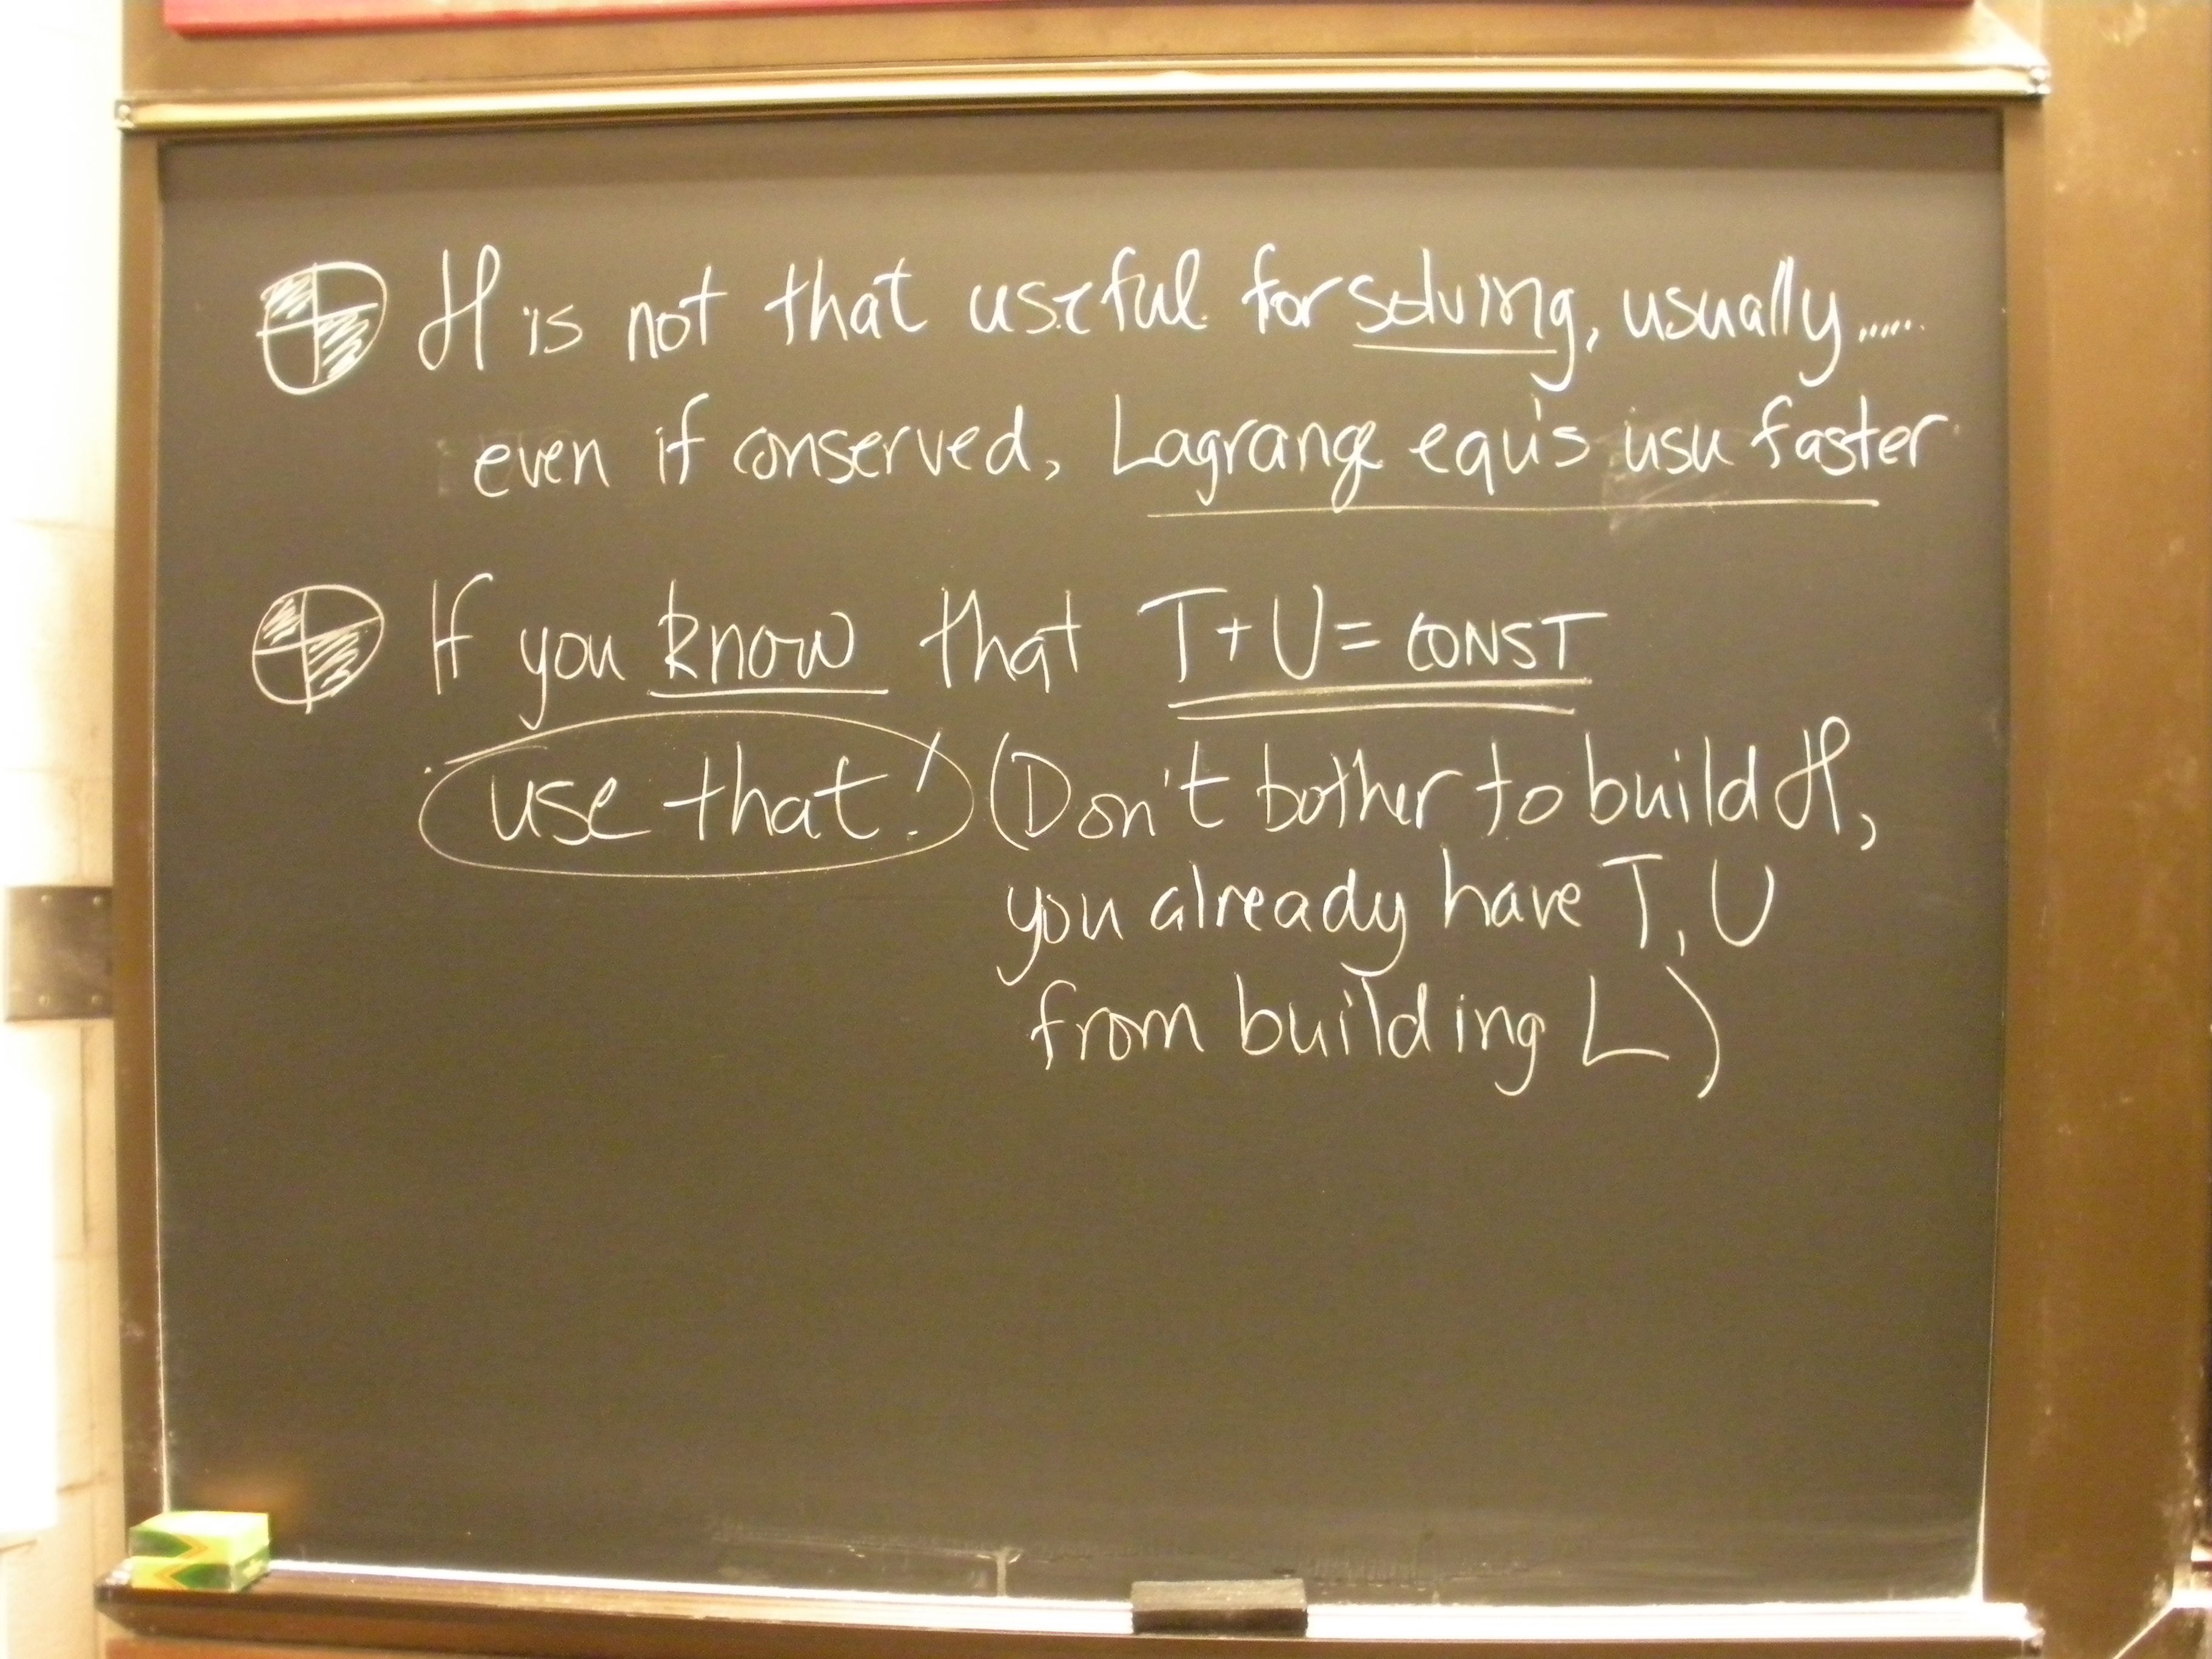 H is not that useful for solving, usually.....
even if conserved, Lagrange equ's usu faster
If you know that T+U = CONST
use that! (Don't bother to build H,
you already have T, U
from building L)